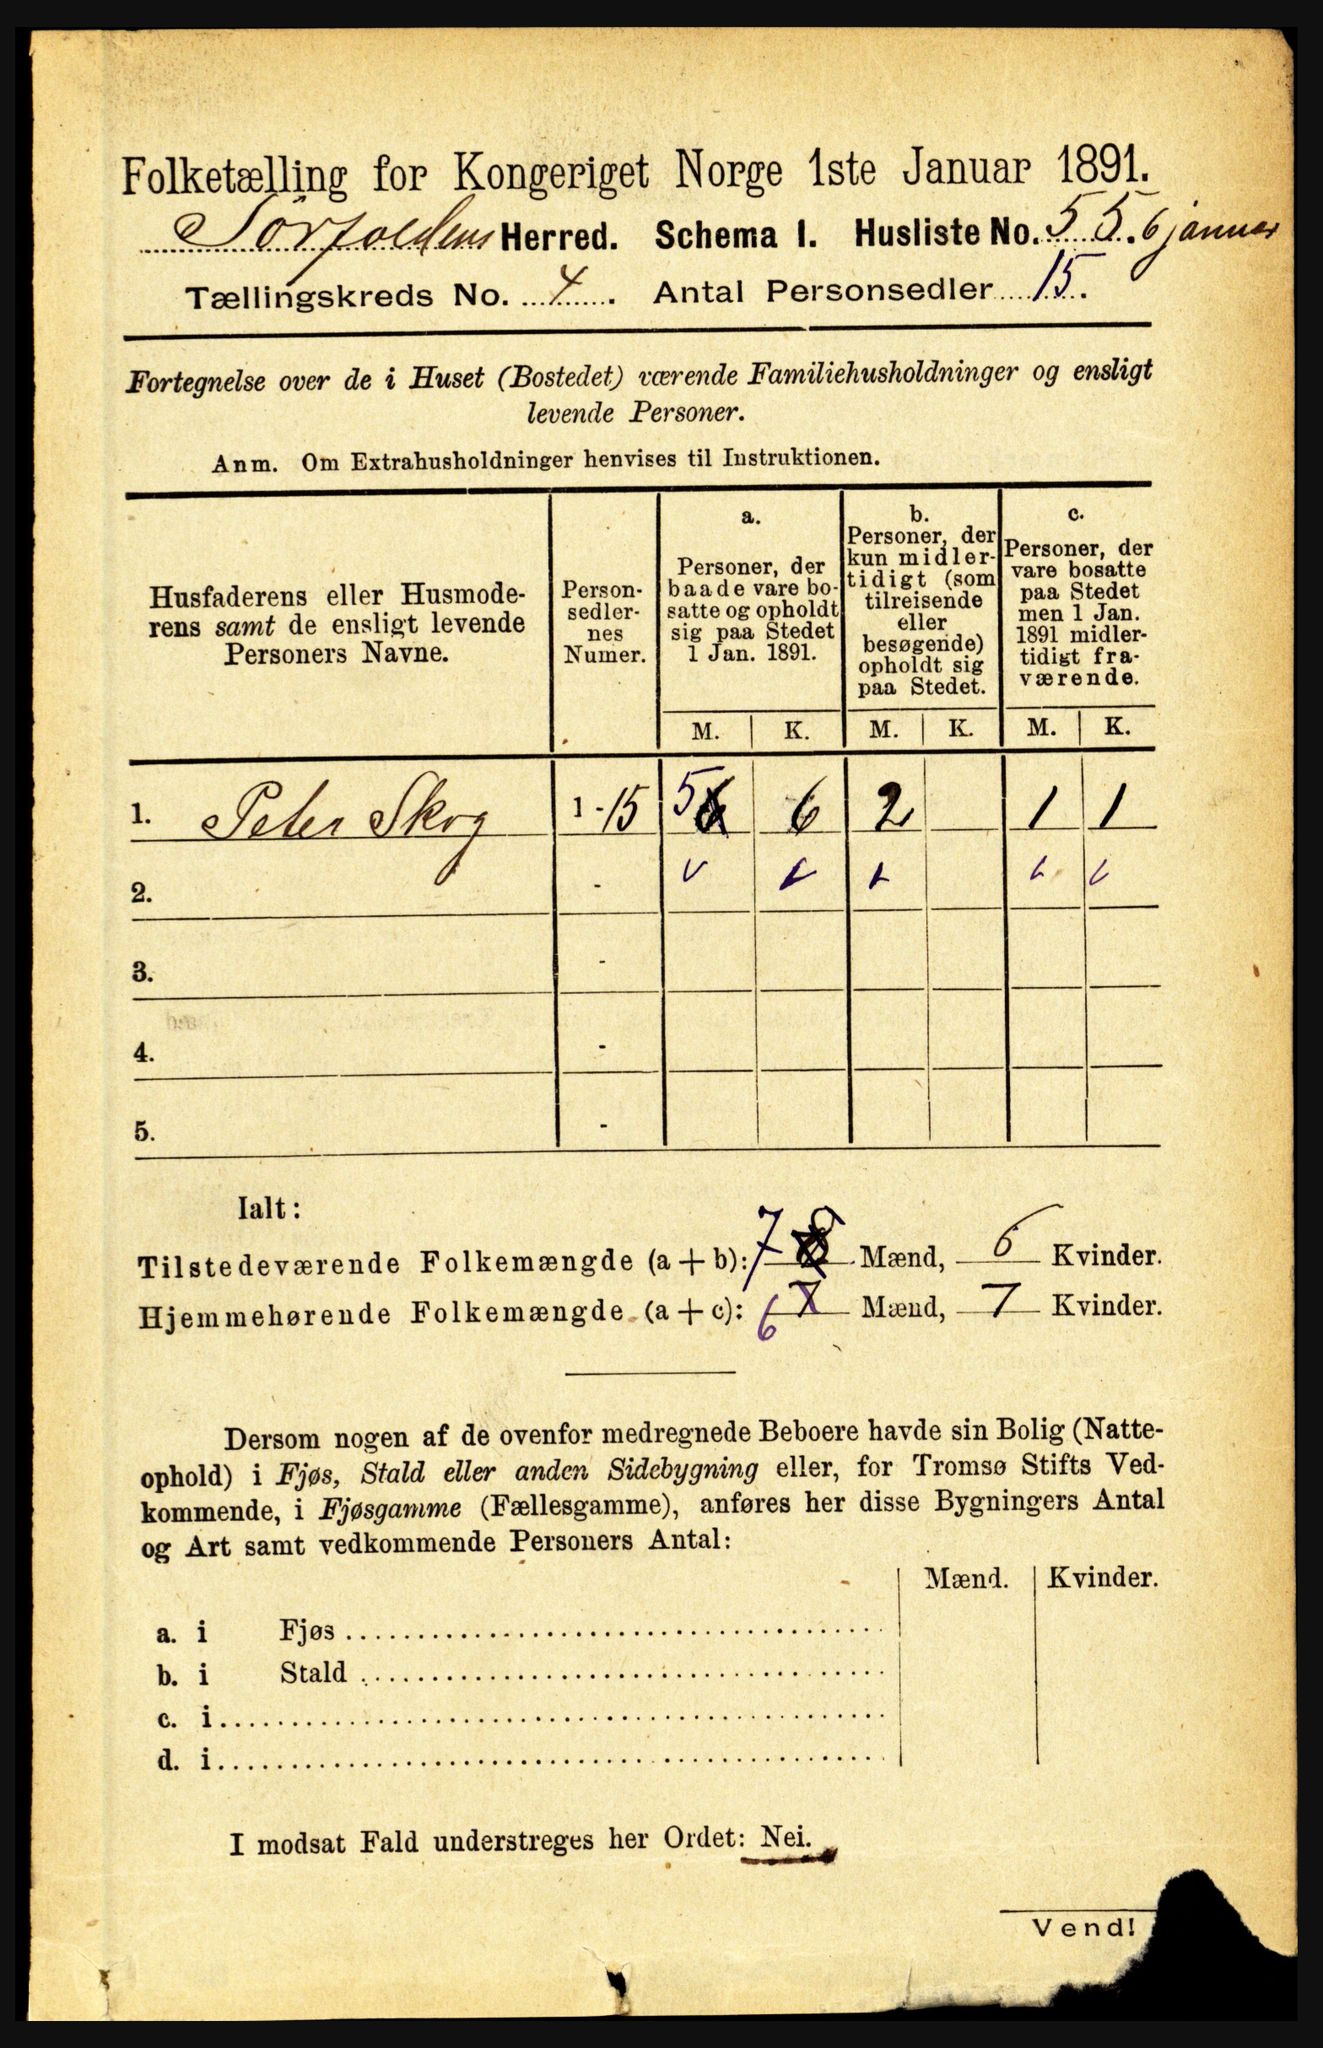 Folketælling for Kongeriget Norge 1ste Januar 1891.
Sörfoldens Herred. Schema I. Husliste No. 55. 6 januar
Tællingskreds No. 4. Antal Personsedler 15.
Fortegnelse over de i Huset (Bostedet) værende Familiehusholdninger og ensligt
levende Personer.
Anm. Om Extrahusholdninger henvises til Instruktionen.
Husfaderens eller Husmode-
rens samt de ensligt levende
Personers Navne.
Person-
sedler-
nes
Numer.
a.
Personer, der
baade vare bo-
satte og opholdt
sig paa Stedet
1 Jan. 1891.
b.
Personer, der
kun midler-
tidigt (som
tilreisende
eller
besøgende)
opholdt sig
paa Stedet.
c.
Personer, der
vare bosatte
paa Stedet
men 1 Jan.
1891 midler-
tidigt fra-
værende.
M. K. M. K. M. K.
1. Peter Skog 1-15 5 6 6 2 1 1
2. -
3. -
4. -
5. -
Ialt:
Tilstedeværende Folkemængde (a + b): 7 8 Mænd, 6 Kvinder.
Hjemmehørende Folkemængde (a + c): 6 7 Mænd, 7 Kvinder.
Dersom nogen af de ovenfor medregnede Beboere havde sin Bolig (Natte-
ophold) i Fjøs, Stald eller anden Sidebygning eller, for Tromsø Stifts Ved-
kommende, i Fjøsgamme (Fællesgamme), anføres her disse Bygningers Antal
og Art samt vedkommende Personers Antal:
Mænd. Kvinder.
a. i Fjøs
b. i Stald
c. i
d. i
I modsat Fald understreges her Ordet: Nei.
Vend!